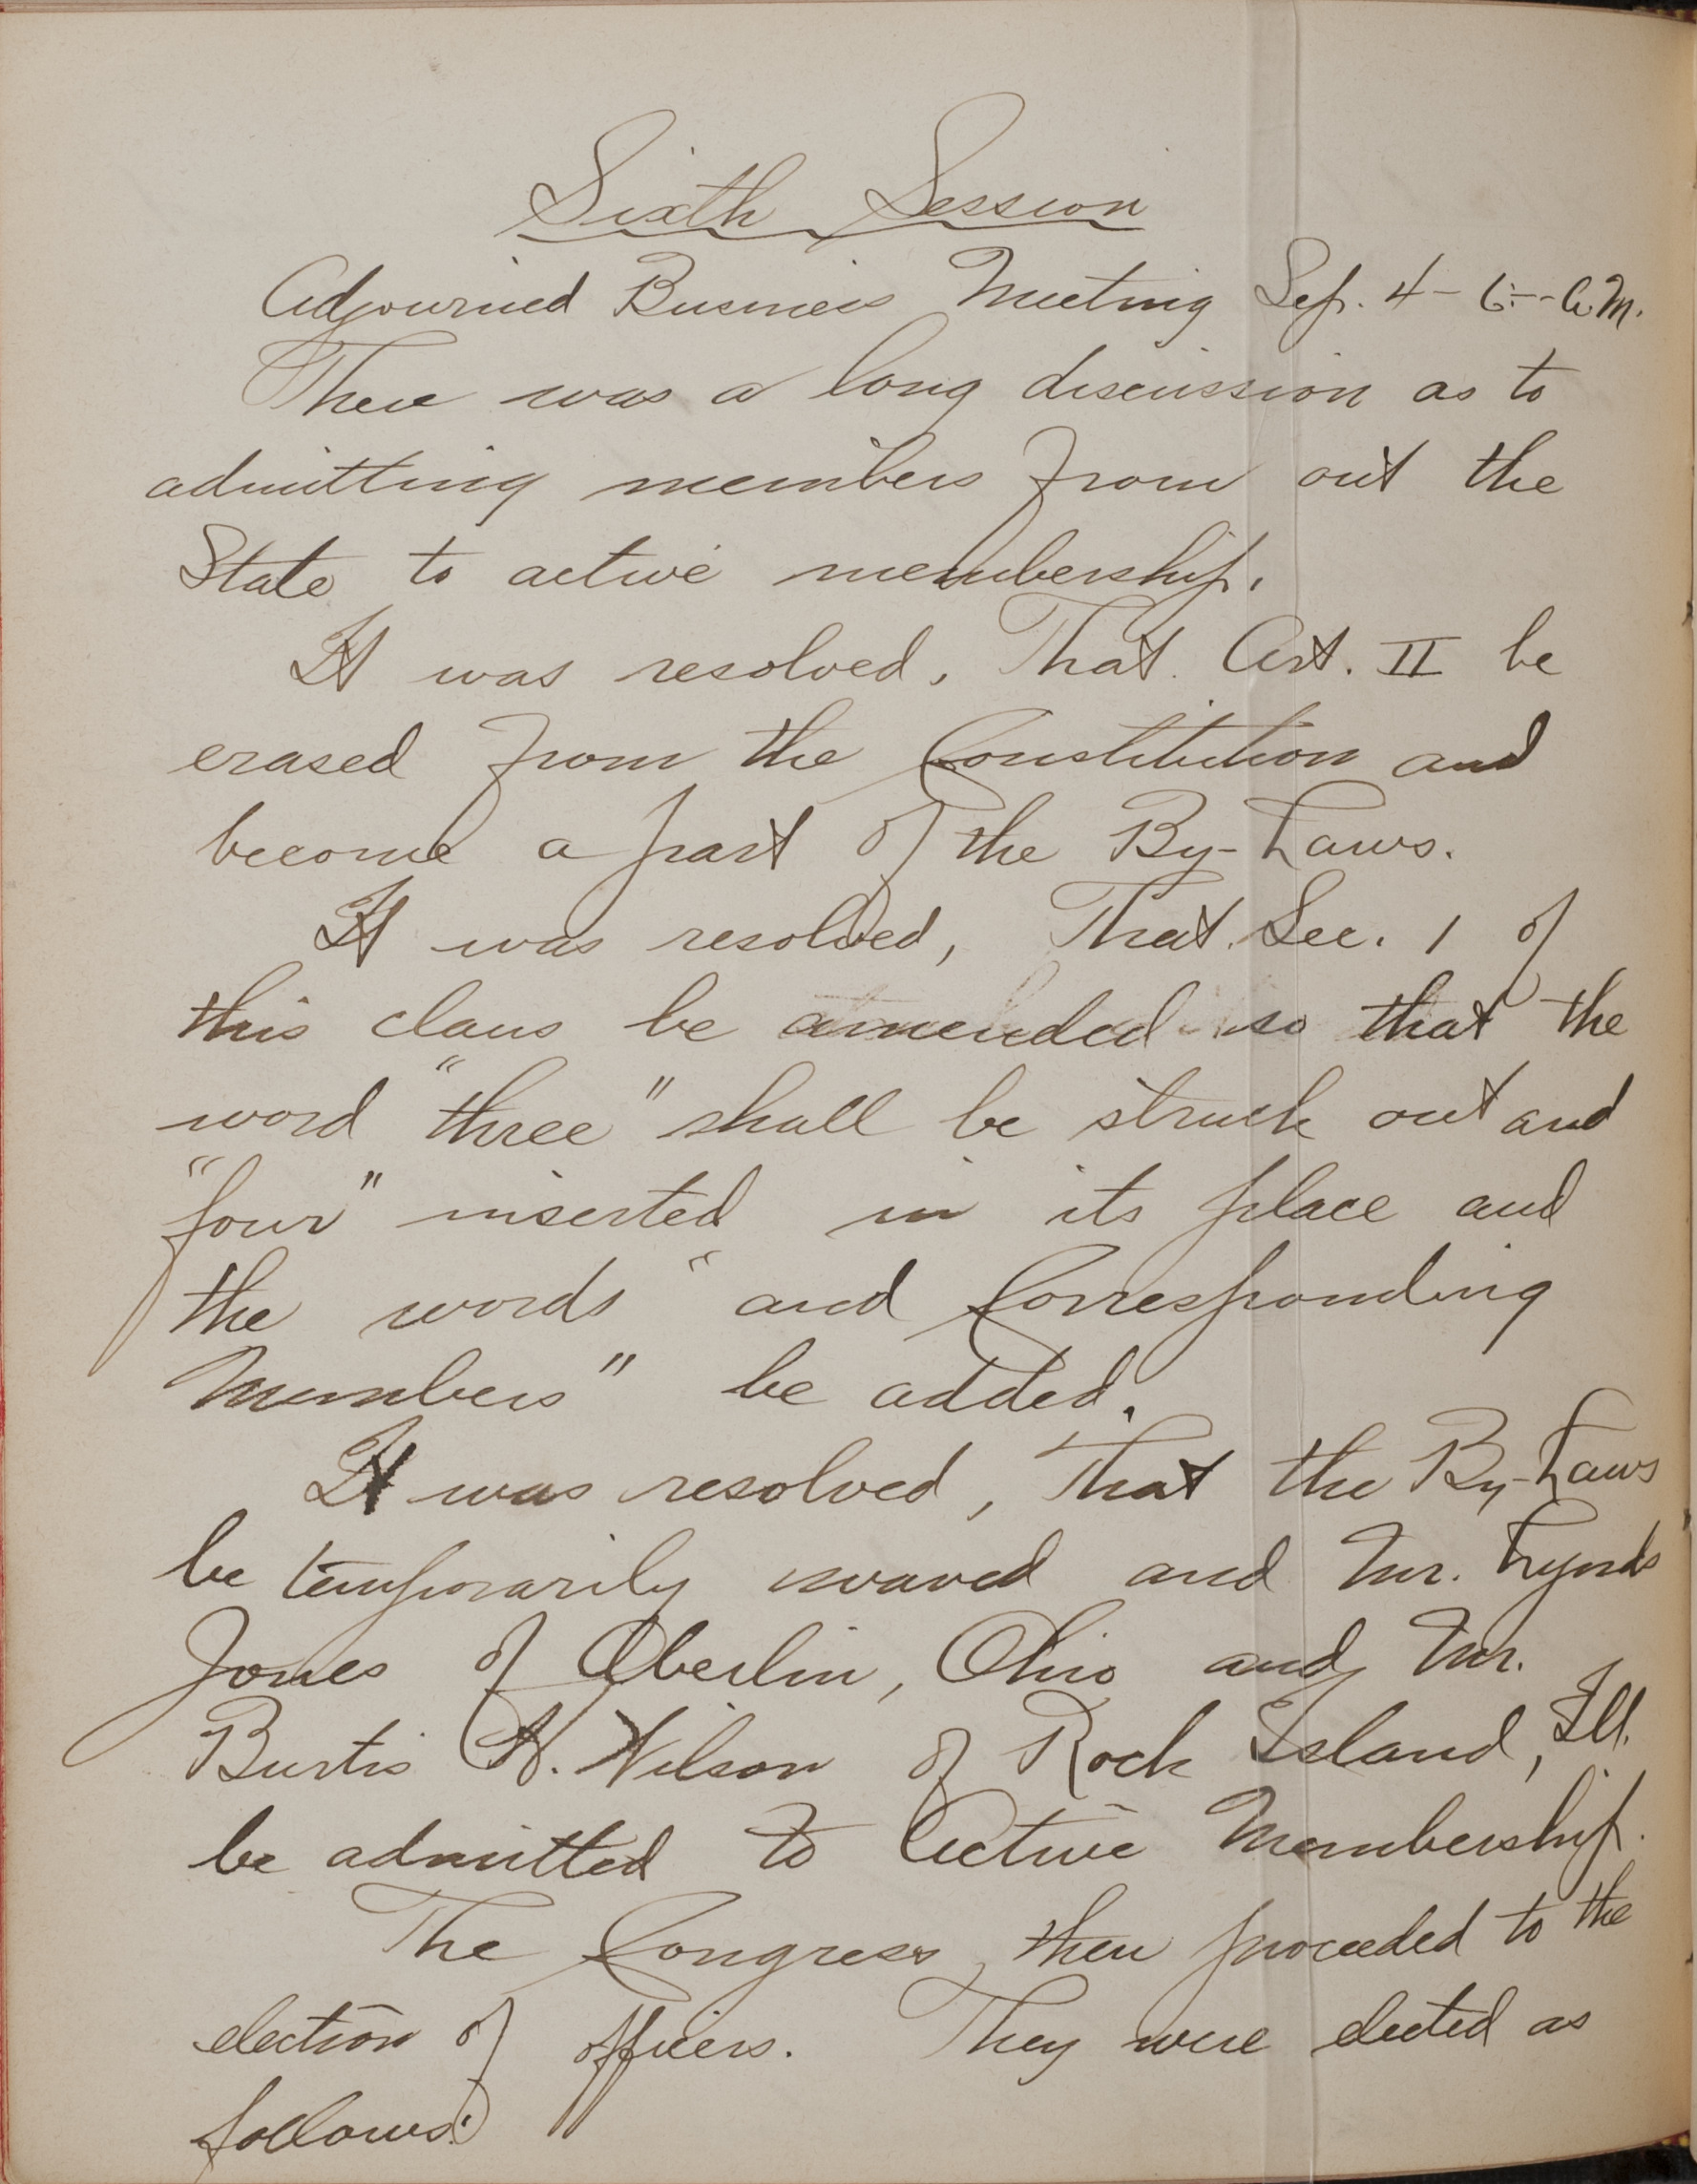 Sixth Session
Adjourned Business Meeting Sep. 4 - 6:-- A.M.
There was a long discussion as to
admitting members from out the
State to active membership.
It was resolved, That Art. II be
erased from the Constitution and
become a part of the By-Laws.
It was resolved, That Sec. 1 of
this claus be amended so that the
word "three" shall be struck out and
"four" inserted in its place and
the words "and Corresponding
Members" be added.
It was resolved, That the By-Laws
be temporarily waved and Mr. Lynds
Jones of Oberlin, Ohio and Mr.
Burtis H. Wilson of Rock Island, Ill.
be admitted to Active Membership.
The Congress then proceeded to the
election of officers. They were elected as
follows: